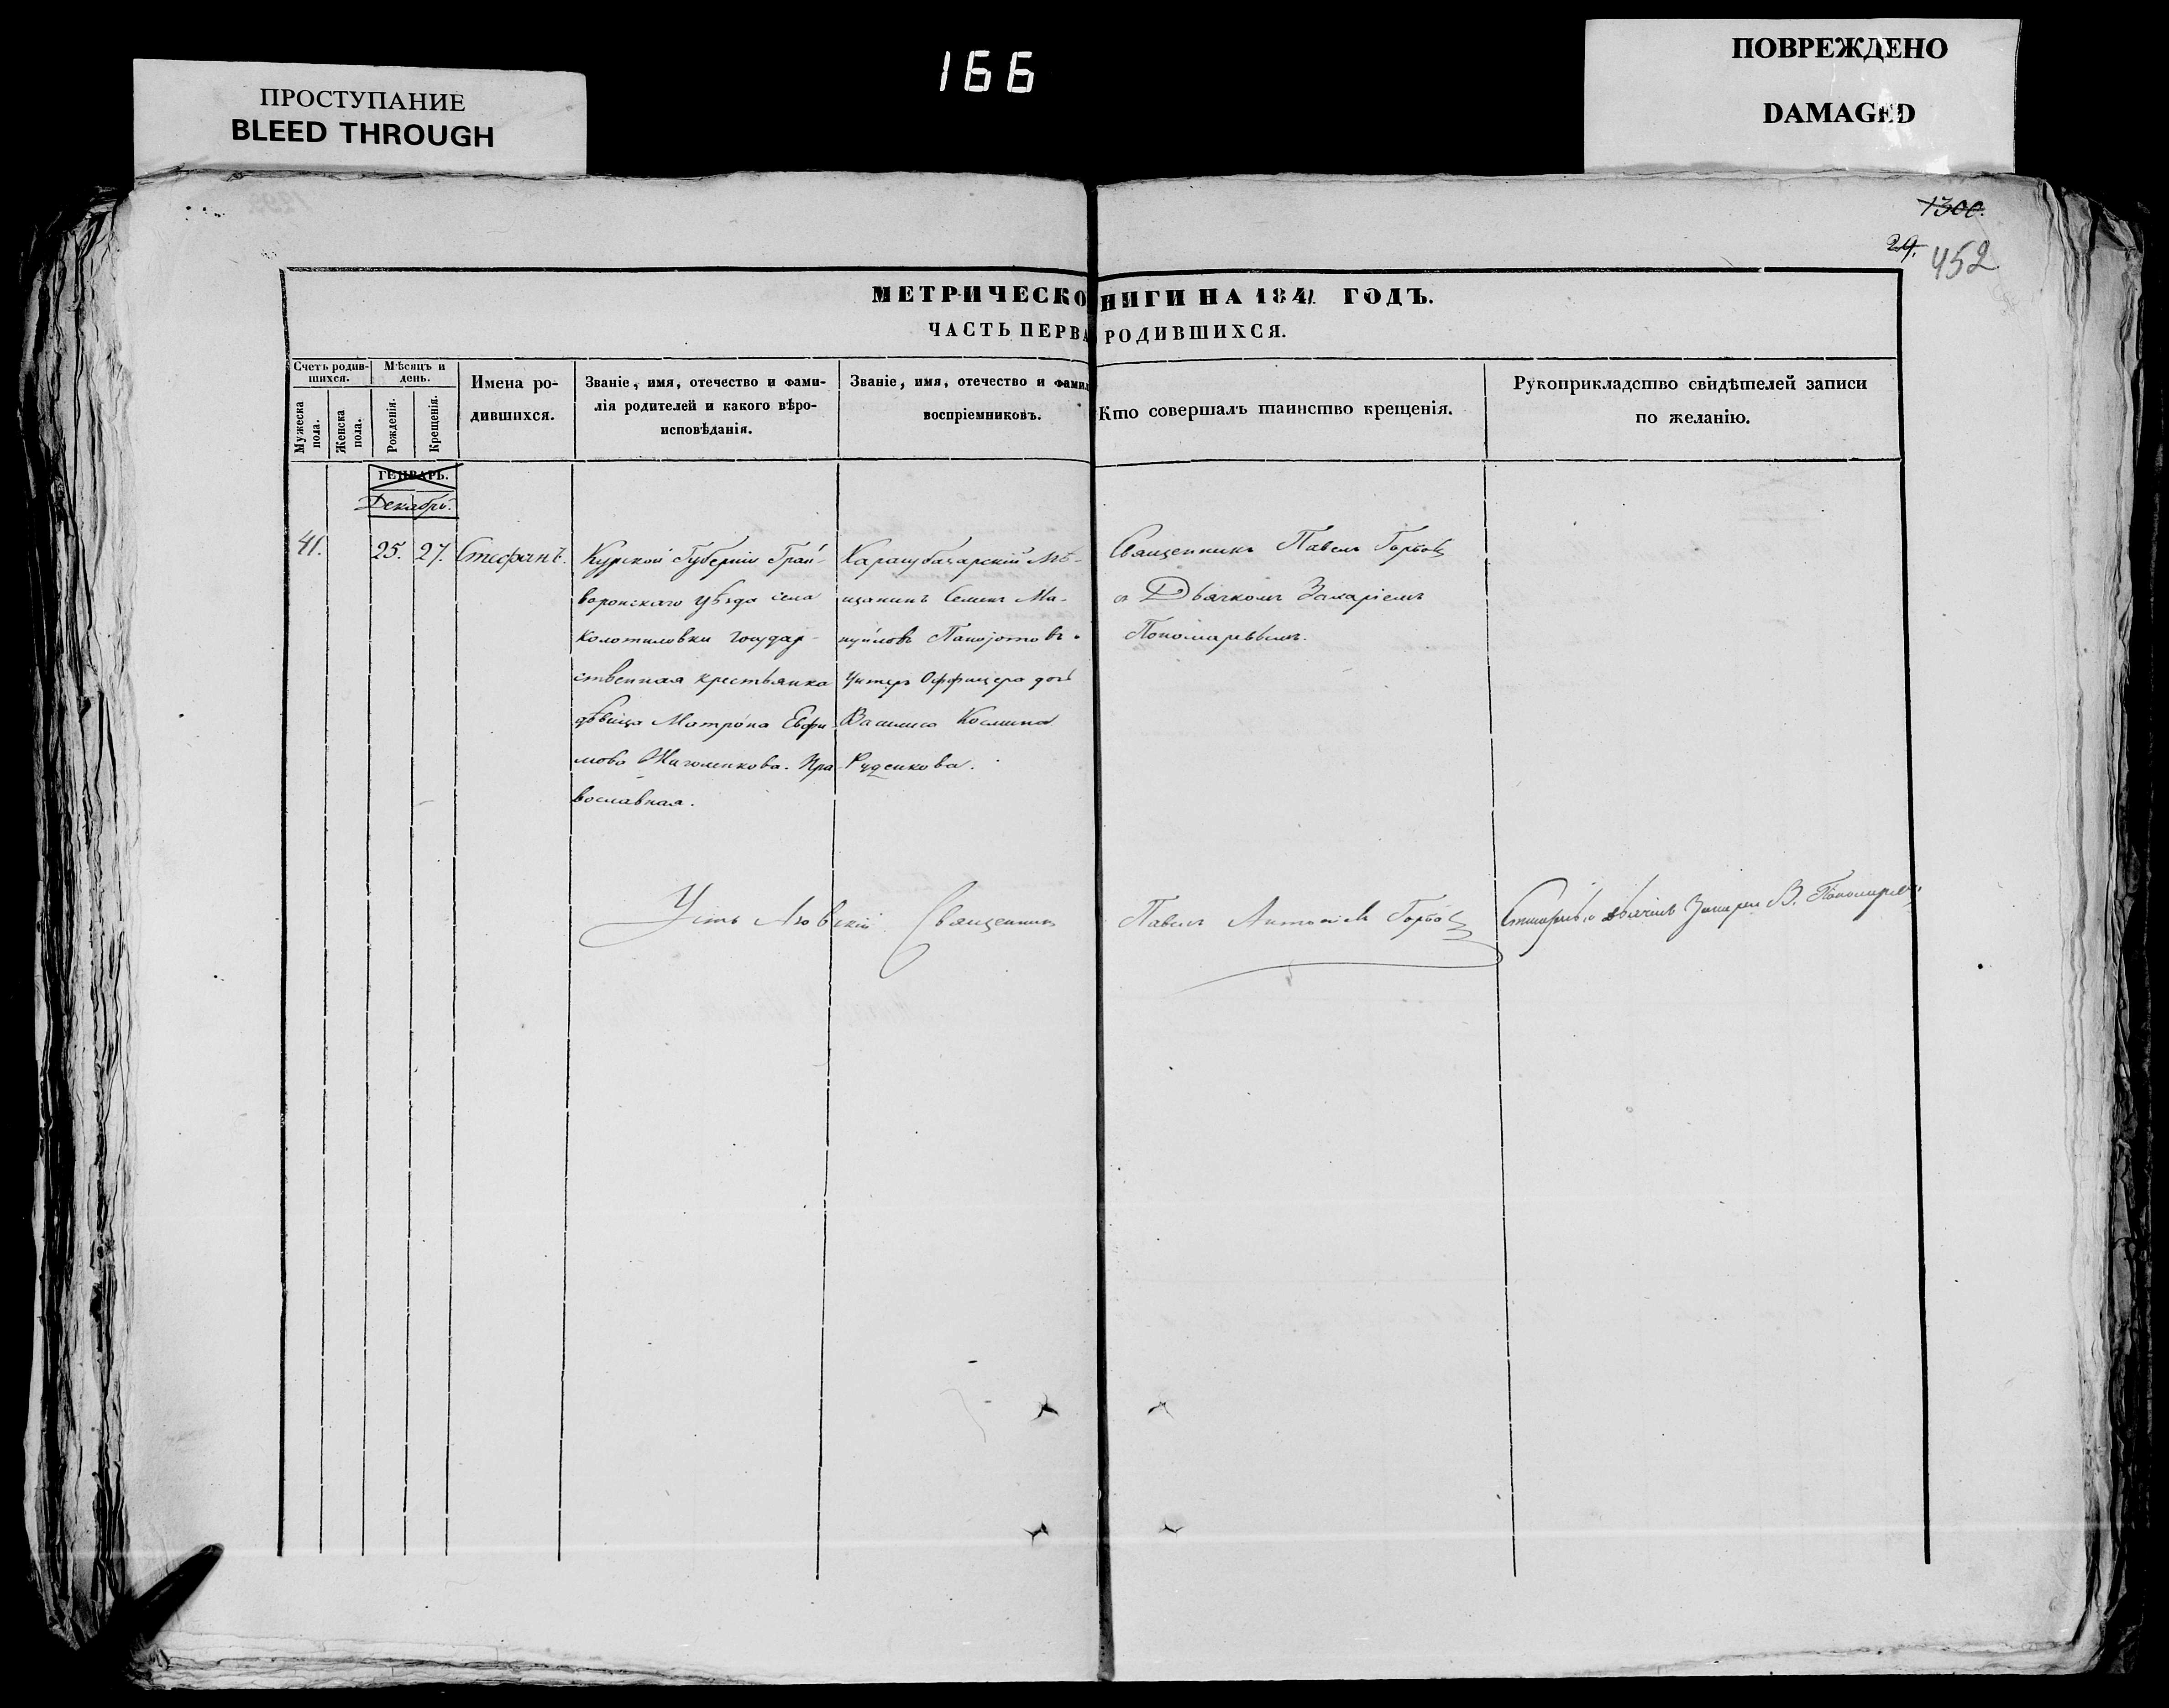 ПРОСТУПАНИЕ
BLEED THROUGH
166
ПОВРЕЖДЕНО
DAMAGED
1300.
29.
452
МЕТРИЧЕСКО НИГИ НА 1841 ГОДЪ.
ЧАСТЬ ПЕРВА РОДИВШИХСЯ.
Счетъ родив-
шихся.
Мужеска
пола.
Женска
пола.
Мѣсяцъ и
день.
Рожденія.
Крещенія.
Имена ро-
дившихся.
Званіе, имя, отечество и фами-
лія родителей и какого вѣро-
исповѣданія.
Званіе, имя, отечество и фамил
воспріемниковъ.
Кто совершалъ таинство крещенія.
Рукоприкладство свидѣтелей записи
по желанію.
ГЕНВАРЬ.
Декабрь.
41.
25.
27.
Стефанъ.
Курской Губерніи Грай-
воронскаго уѣзда села
Колотиловки государ-
ственная крестьянка
дѣвица Матрона Евфи-
мова Жиголенкова. Пра-
вославная.
Карасубазарскій Мѣ-
щанинъ Семенъ Ма-
нуиловъ Панаjотовъ.
Унтеръ Оффицера дочь
Василиса Космина
Руденкова.
Священникъ Павелъ Горбов
съ Дьячкомъ Захаріемъ
Пономаревымъ.
Усть Азовскій Священникъ Павелъ Антоніев Горбов
дьячекъ Захарій В. Пономарев